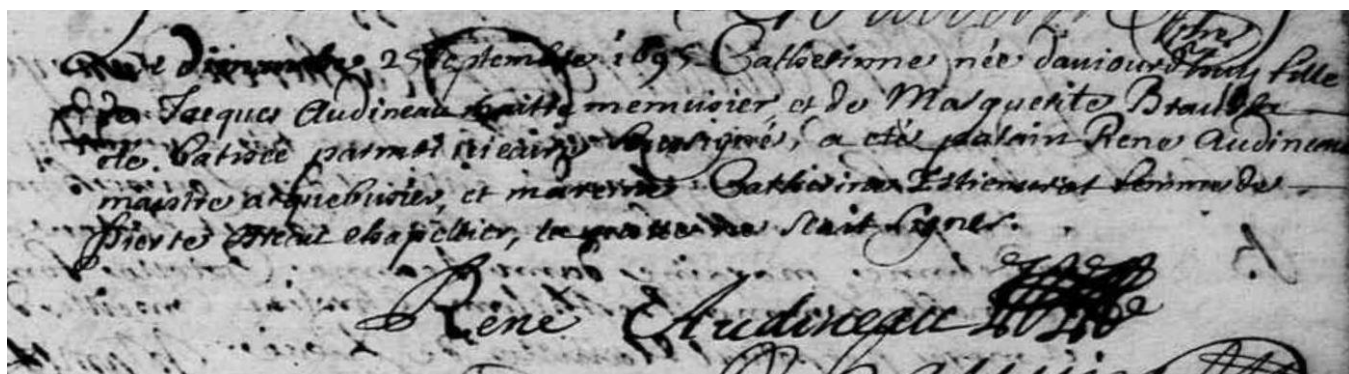 Le dimanche 25 septembre 1695 Catherinne née dauiourdhuy fille
de Jacques Audineau maitre menusier et de Marguerite
eté batisée par moi vicaire soussigné, a eté parain René Audineau
maistre arquebusier, et mareine Catherine femme de
Pierre chapellier, laquelle ne scait signer.
René Audineau